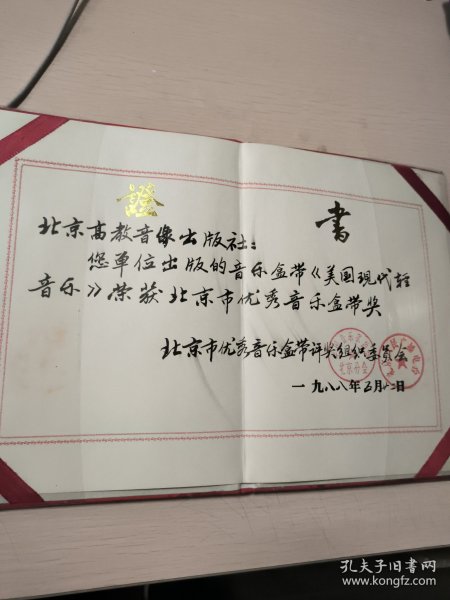 證書
北京高教音像出版社：
您单位出版的音乐盒带《美国现代轻
音乐》荣获北京市优秀音乐盒带奖
北京市优秀音乐盒带评奖组织委员会
北京分会
一九八八年五月十二日
孔夫子旧书网
www.kongfz.com